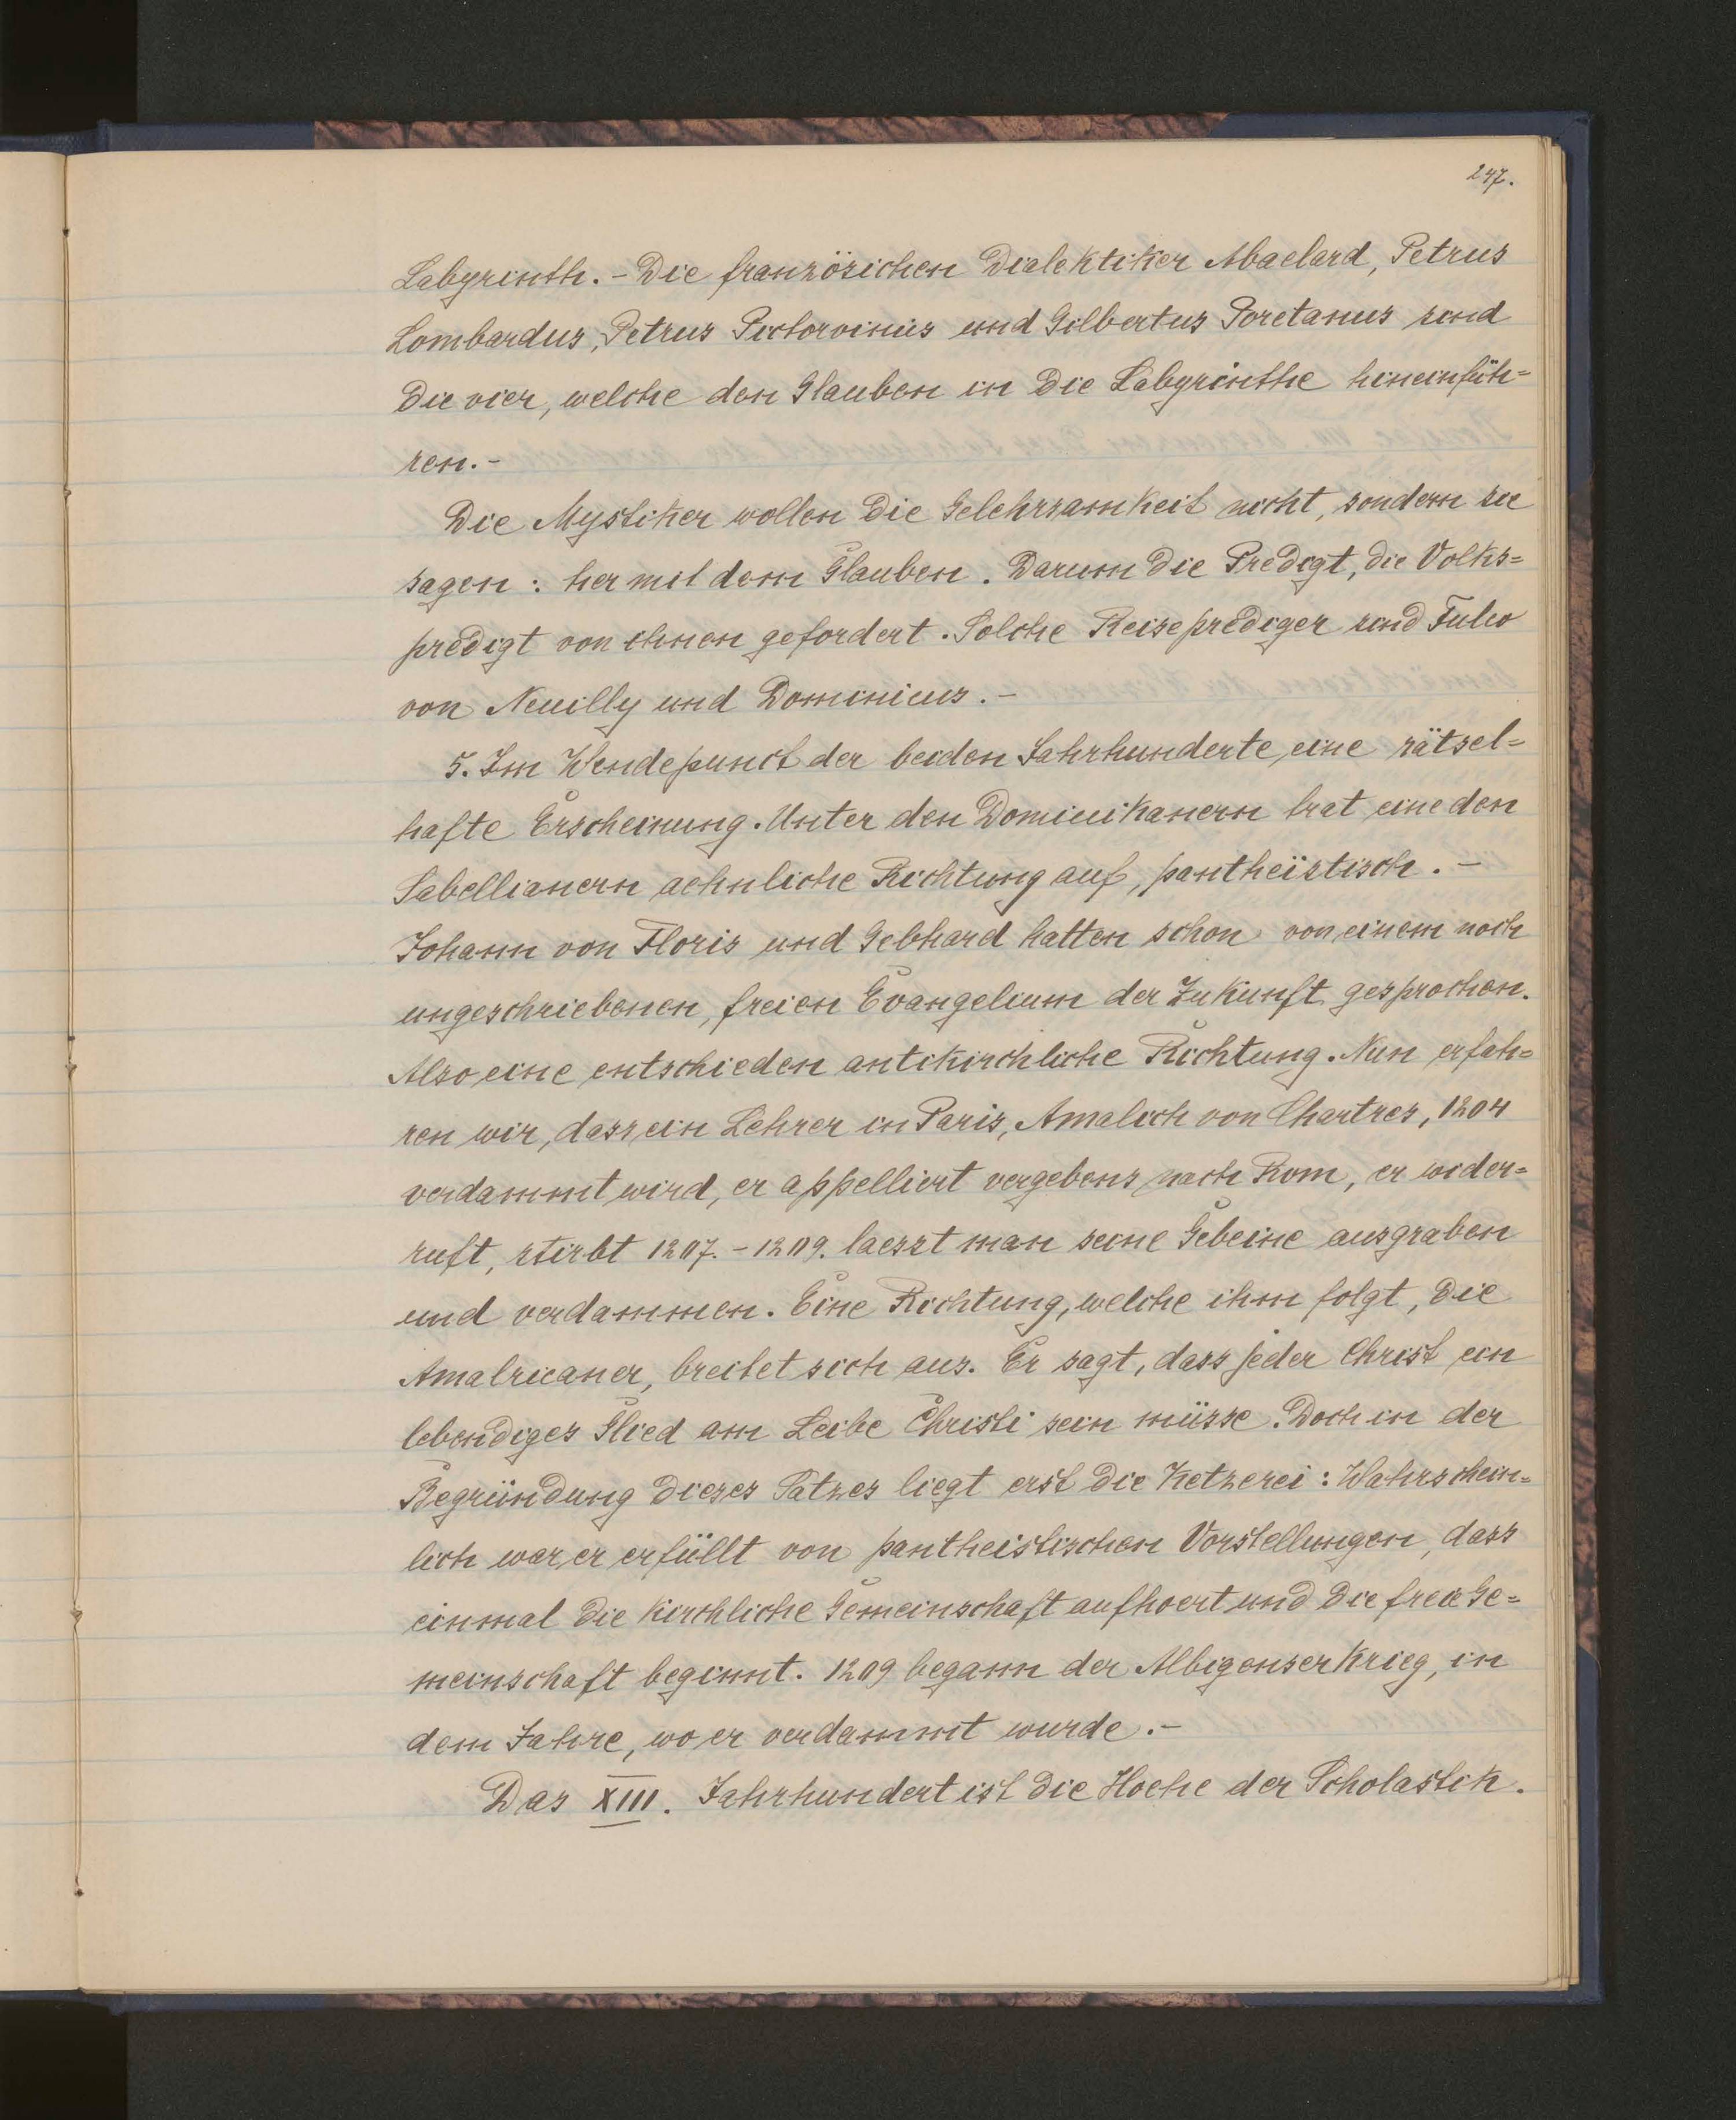 247.
Labyrinth. - Die französichen Dialektiker Abaelard, Petrus
Lombardus, Petrus Pictorvinus und Gilbertus Poretanus sind
die vier, welche den Glauben in die Labyrinthe hineinfüh=
ren. -
Die Mystiker wollen die Gelehrsamkeit nicht, sondern sie
sagen: her mit dem Glauben. Darum die Predigt, die Volks=
predigt von ihnen gefordert. Solche Reiseprediger sind Fulco
von Neuilly und Dominicus. -
5. Im Wendepunct der beiden Jahrhunderte eine rätsel=
hafte Erscheinung. Unter den Dominikanern trat eine den
Sabellianern aehnliche Richtung auf, pantheïstisch. -
Johann von Floris und Gebhard hatten schon von einem noch
ungeschriebenen, freien Evangelium der Zukunft gesprochen.
Also eine entschieden antikirchliche Richtung. Nun erfah=
ren wir, dass ein Lehrer in Paris, Amalich von Chartres, 1204
verdammt wird, er appelliert vergebens nach Rom, er wider=
ruft, stirbt 1207. - 1209. laesst man seine Gebeine ausgraben
und verdammen. Eine Richtung, welche ihm folgt, die
Amalricaner, breitet sich aus. Er sagt, dass jeder Christ ein
lebendiges Glied am Leibe Christi sein müsse. Doch in der
Begründung dieses Satzes liegt erst die Ketzerei: Wahrschein=
lich war er erfüllt von pantheistischen Vorstellungen, dass
einmal die kirchliche Gemeinschaft aufhoert und die freie Ge=
meinschaft beginnt. 1209 begann der Albigenserkrieg, in
dem Jahre, wo er verdammt wurde. -
Das XIII. Jahrhundert ist die Hoehe der Scholastik.